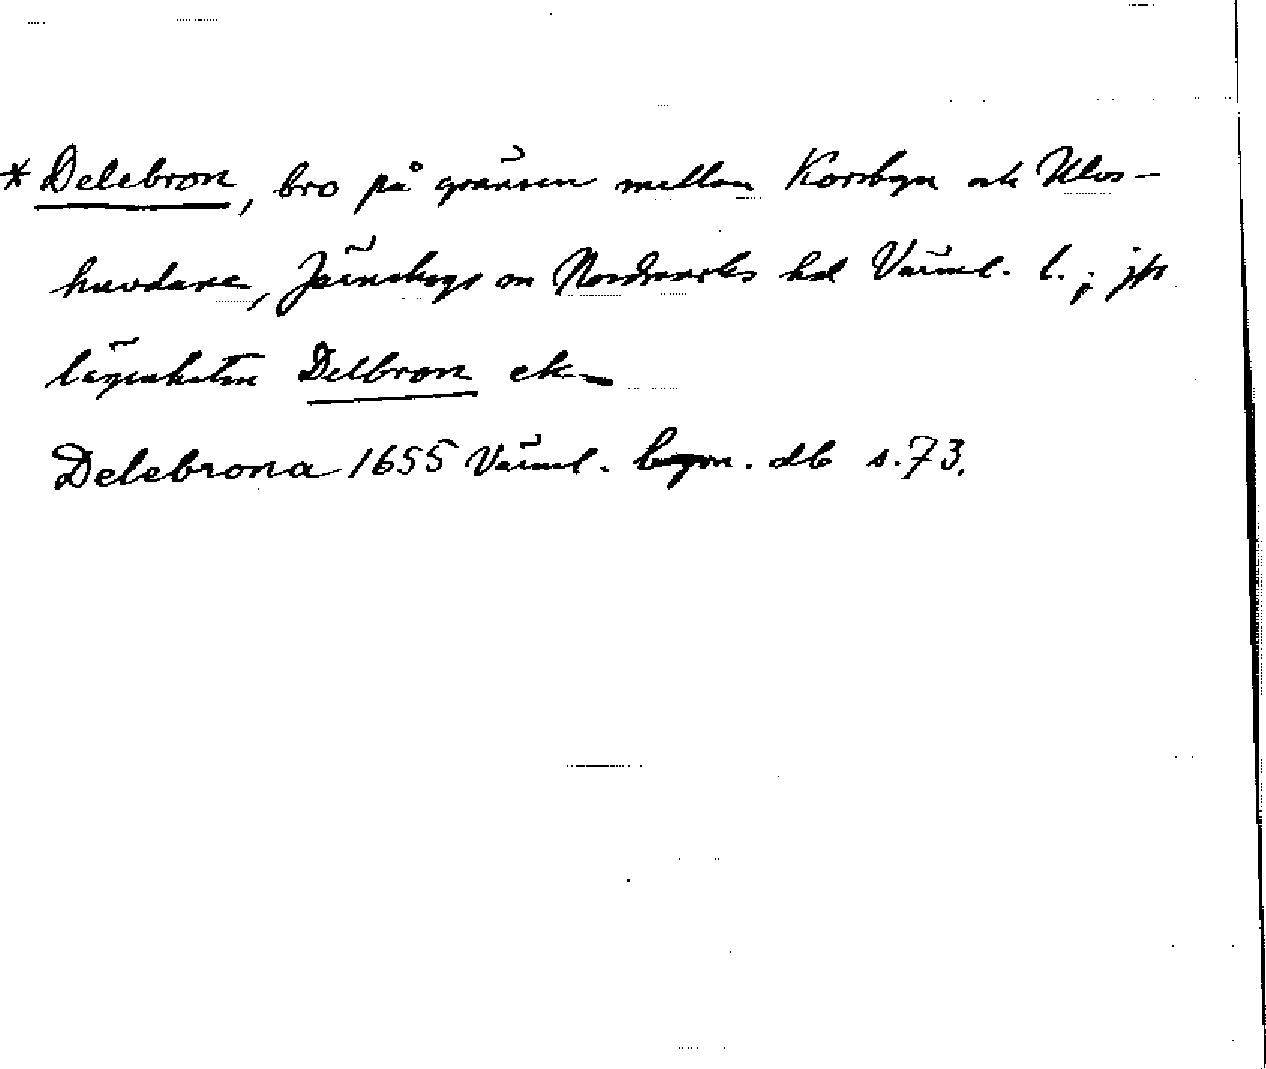 * Delebron, bro på gränsen mellan Korsbyn och Ulvs-
huvdane, Järnskogs sn Nordmarks hd Värml. l.; jfr
lägenheten Delbron ek.
Delebrona 1655 Värml. db s.73.